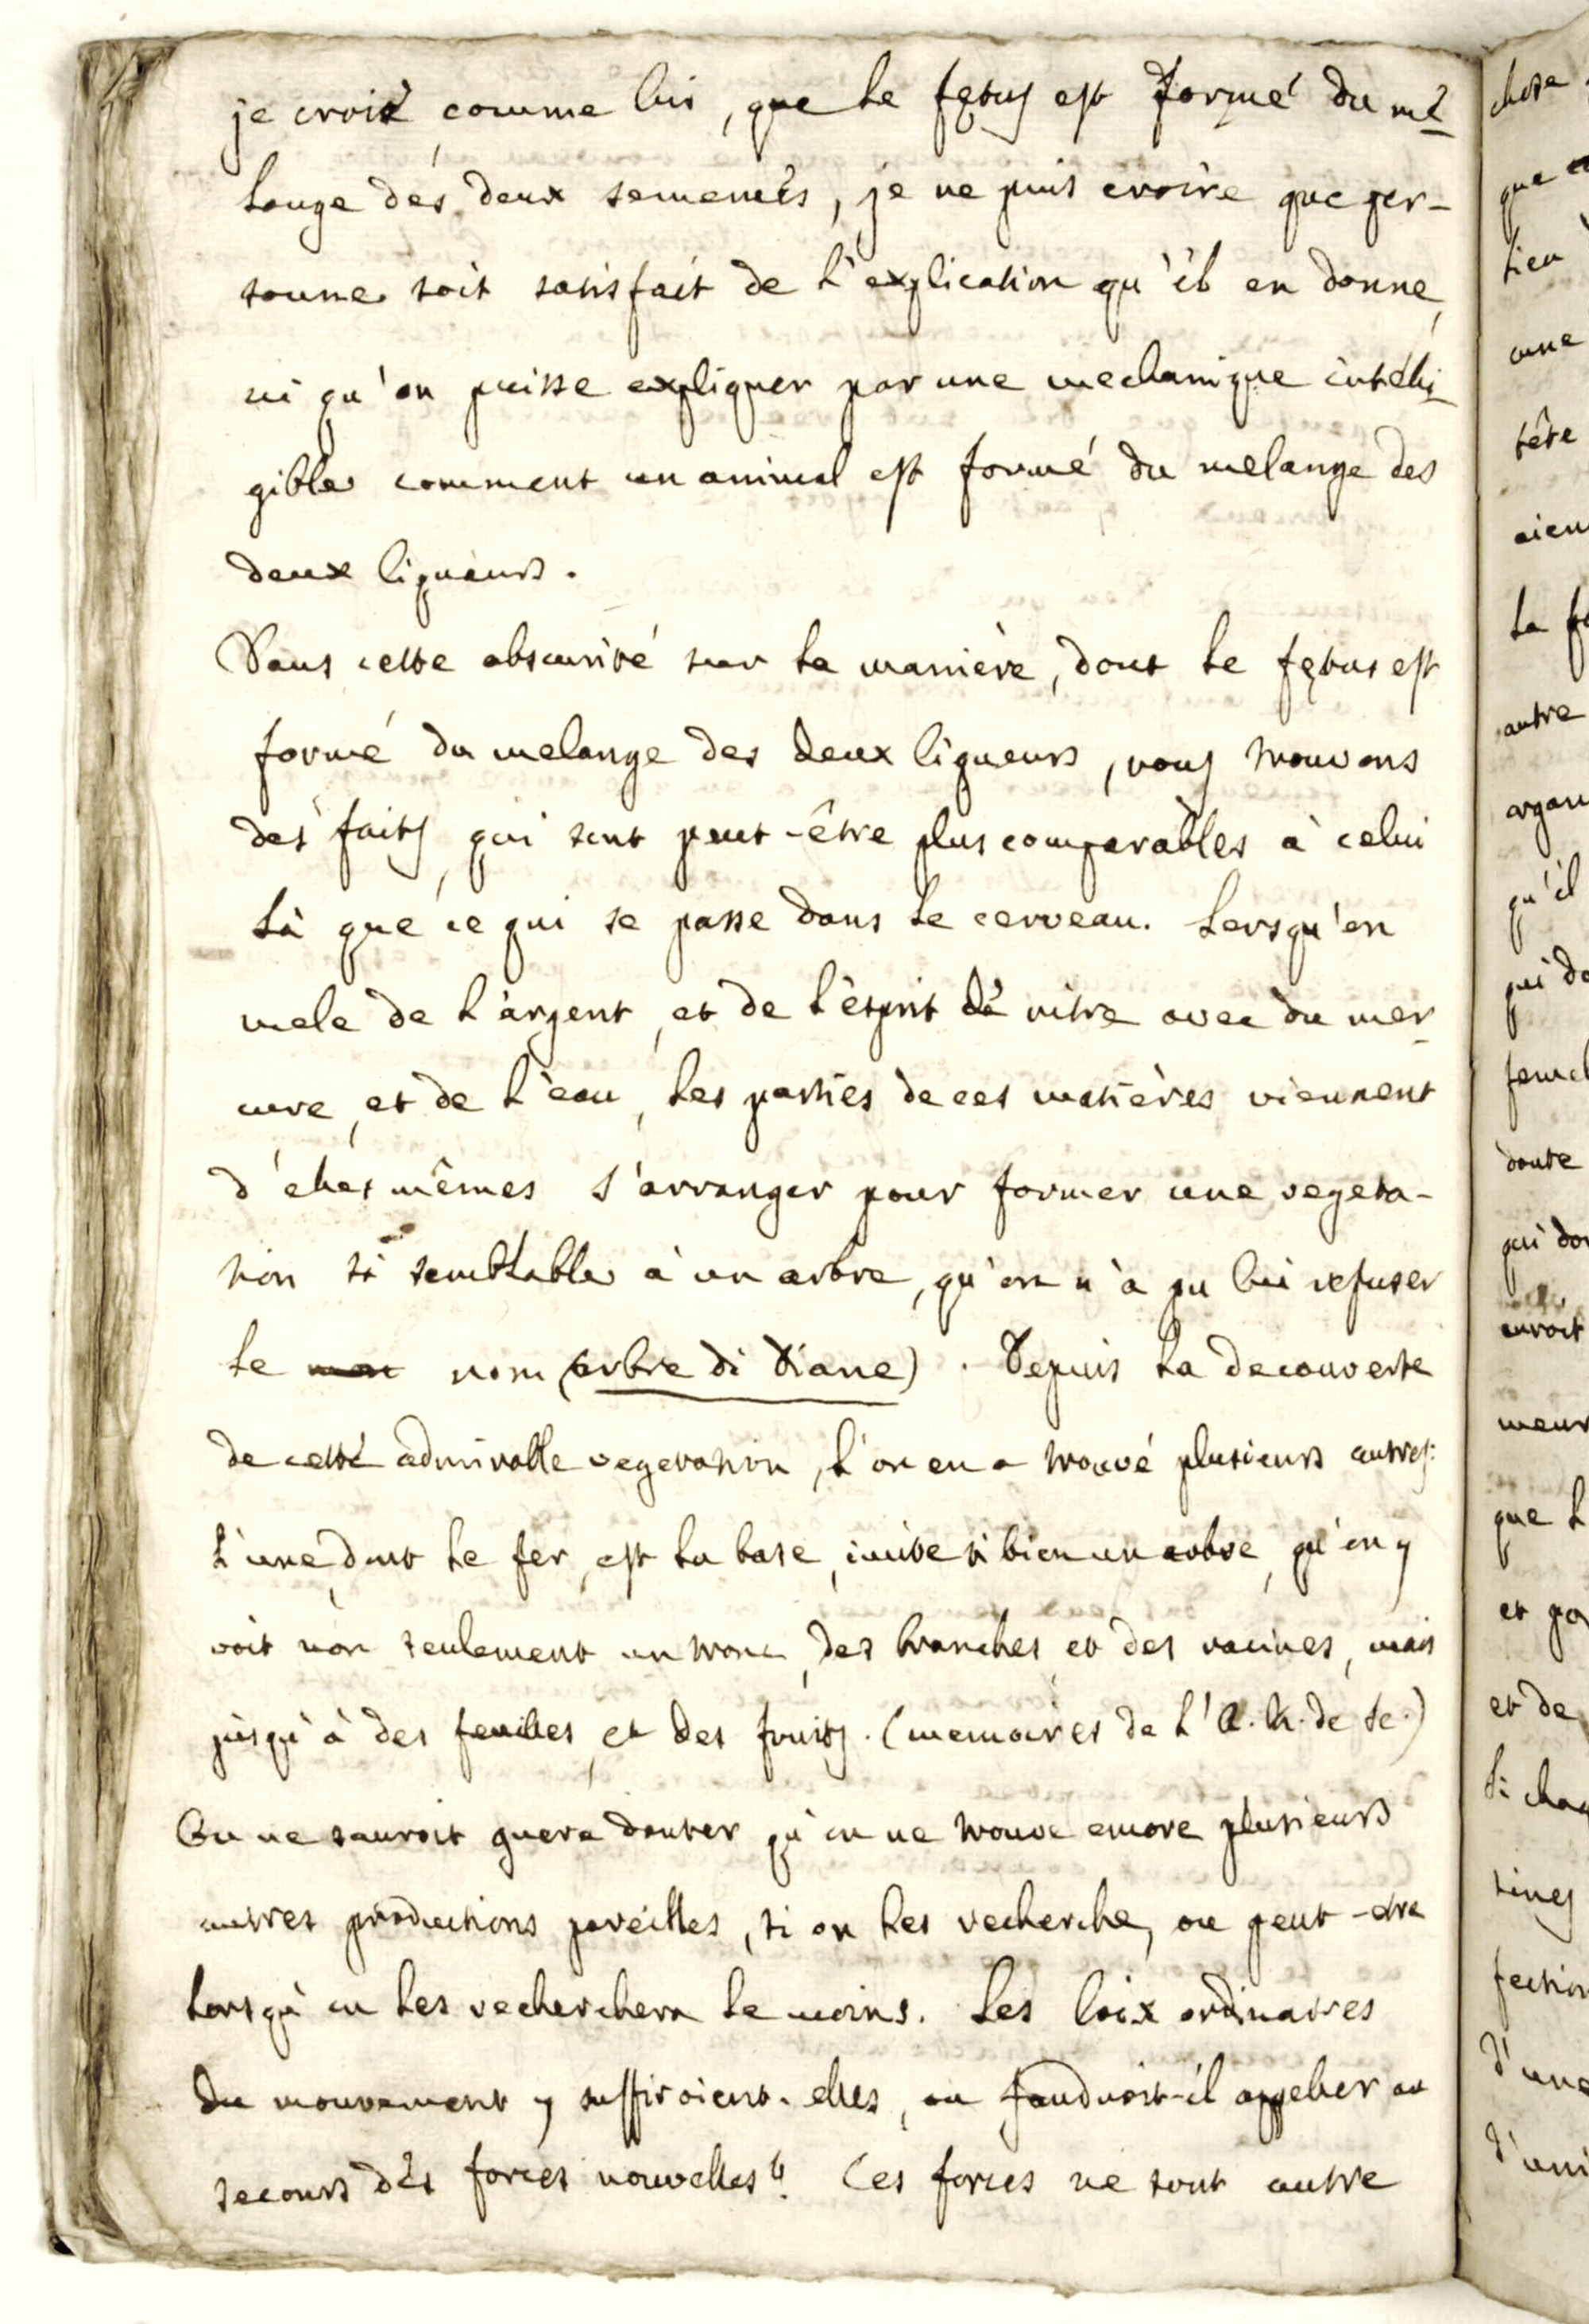 je crois comme lui, que le fętus est formé du mé-
lange des deux semences, je ne puis croire que per-
sonne soit satisfait de l'explication qu'il en donne,
ni qu'on puisse expliquer par une mechanique intelli-
gible comment un animal est formé du melange des
deux liqueurs.
Dans cette obscurité sur la manière, dont le fętus est
formé du melange des deux liqueurs, nous trouvons
des faits, qui sont peut-être plus comparables à celui
là que ce qui se passe dans le cerveau. Lorsqu'on
mele de l'argent, et de l'esprit de nitre avec du mer-
cure, et de l'eau, les parties de ces matières viennent
d'elles mêmes s'arranger pour former une vegeta-
tion si semblable à un arbre, qu'on n'a pu lui refuser
le nom (arbre di Diane). Depuis la decouverte
de cette admirable vegetation, l'on en a trouvé plusieurs autres:
l'une, dont le fer, est la base, imite si bien un arbre, qu'on y
voit non seulement un tronc, des branches et des racines, mais
jusqu'à des feuilles, et des fruits. (memoires de l'a. R. de sc.)
On ne sauroit guere douter qu'on ne trouve encore plusieurs
autres productions pareilles, si on les recherche, ou peut-etre
lorsqu'on les recherchera le moins. Les loix ordinaires
du mouvement y suffiroient-elles, ou faudroit-il appeller au
secours des forces nouvelles? Ces forces ne sont autre
chose
que
lieu
une
tête
aien
la
autre
organ
qu'il
qui
femel
doute
qui
auroit
meur
que
et
et de
si
tines
fection
d'une
d'uni